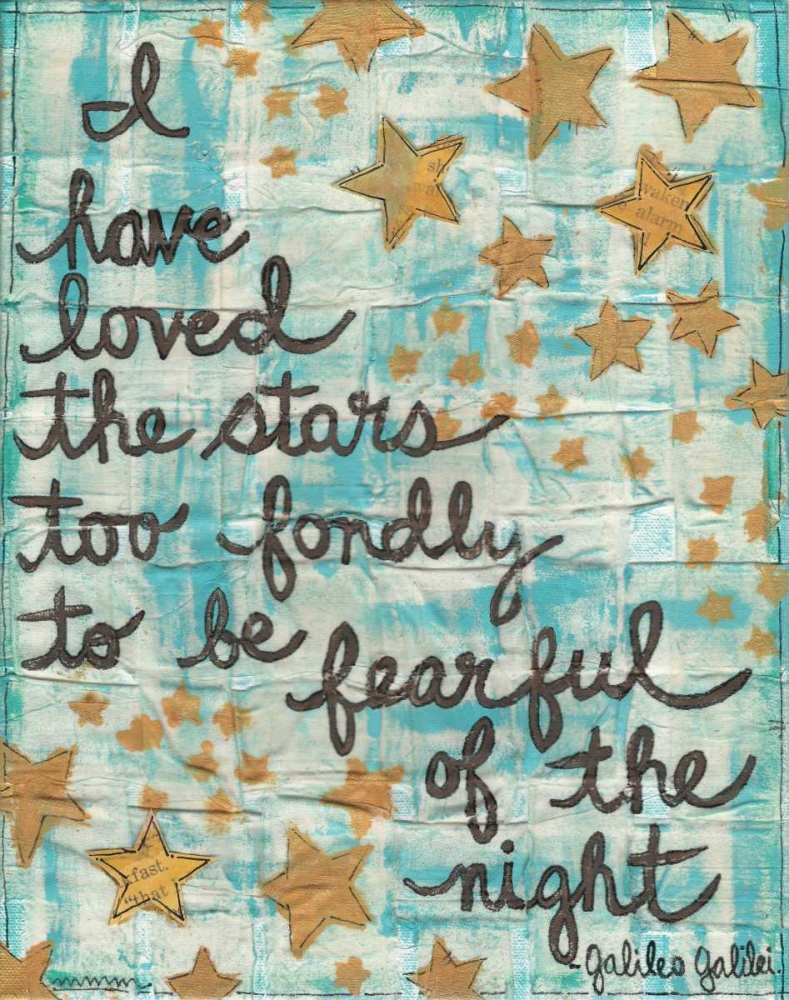 I
have
loved
the stars
too fondly
to be
fearful
of the
night
-Galileo Galilei.
waken
alarm
fast.
"that